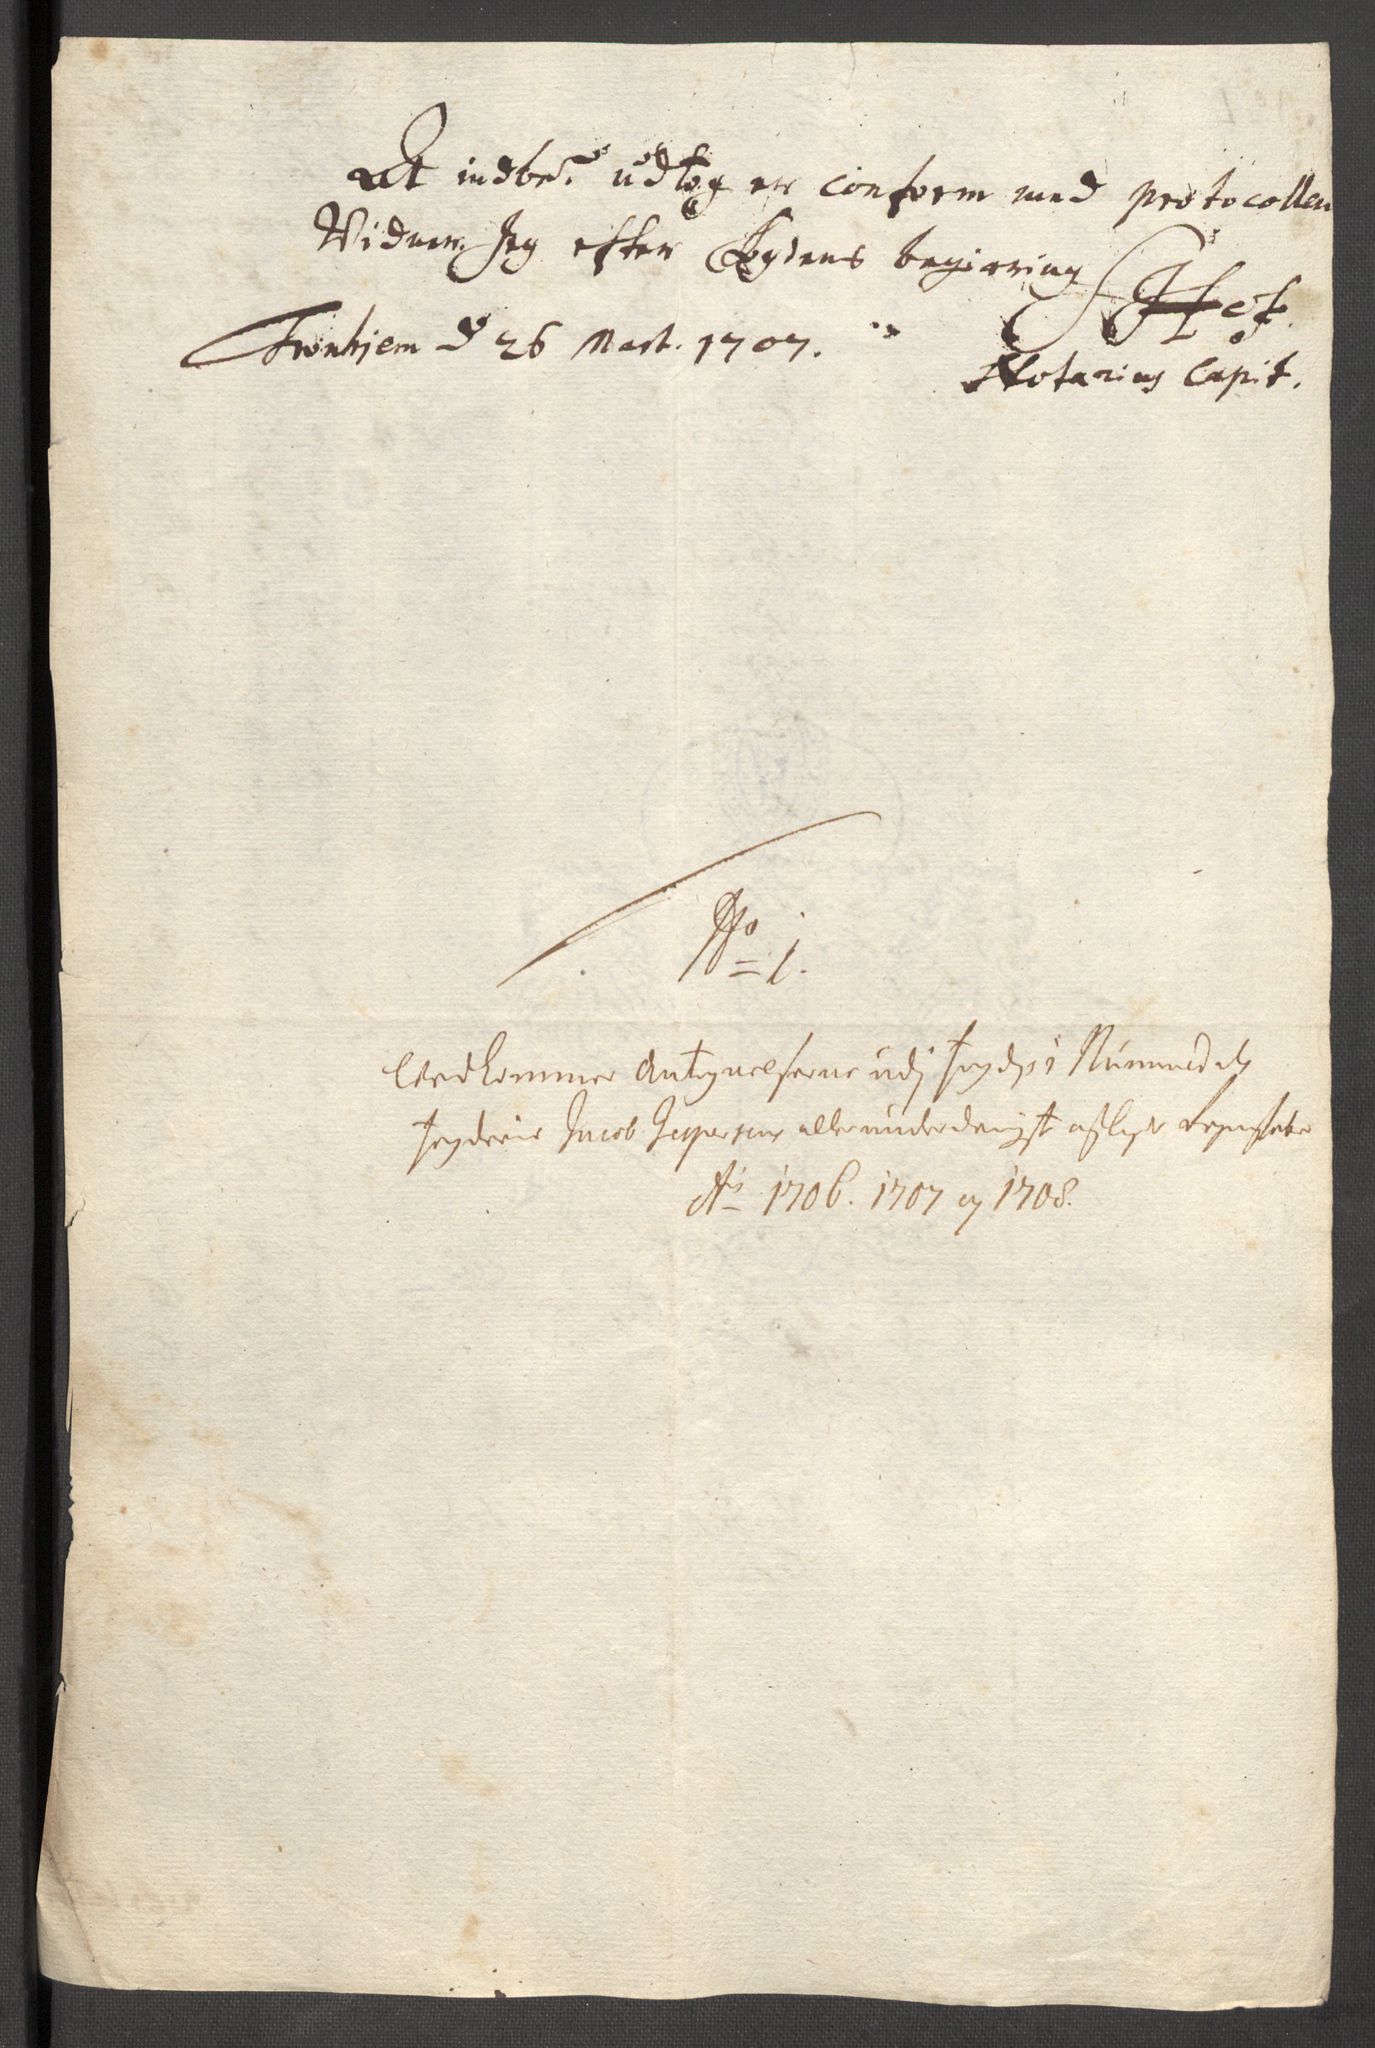 At indbe.te udtog er conform med protocollen
Vidner Jeg efter Fogdens begiering
Tronhjem d 26 Mart. 1707.
Notarius Capit.
No 1.
Vedkommer Antegnelserne udj fogdj i Nummedahls
fogderie Jacob Jespersens allerunderdanigst aflagde Regnskaber
Ao 1706. 1707 og 1708.